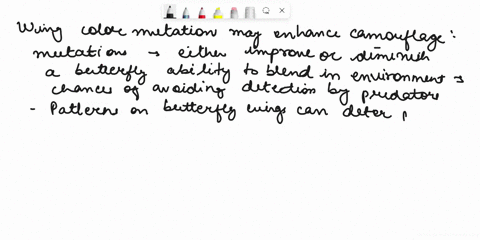 Wing color mutation may enhance camouflage:
mutations → either improve or diminish
a butterfly ability to blend in environment →
chance of avoiding detection by predators
- Patterns on butterfly wings can deter